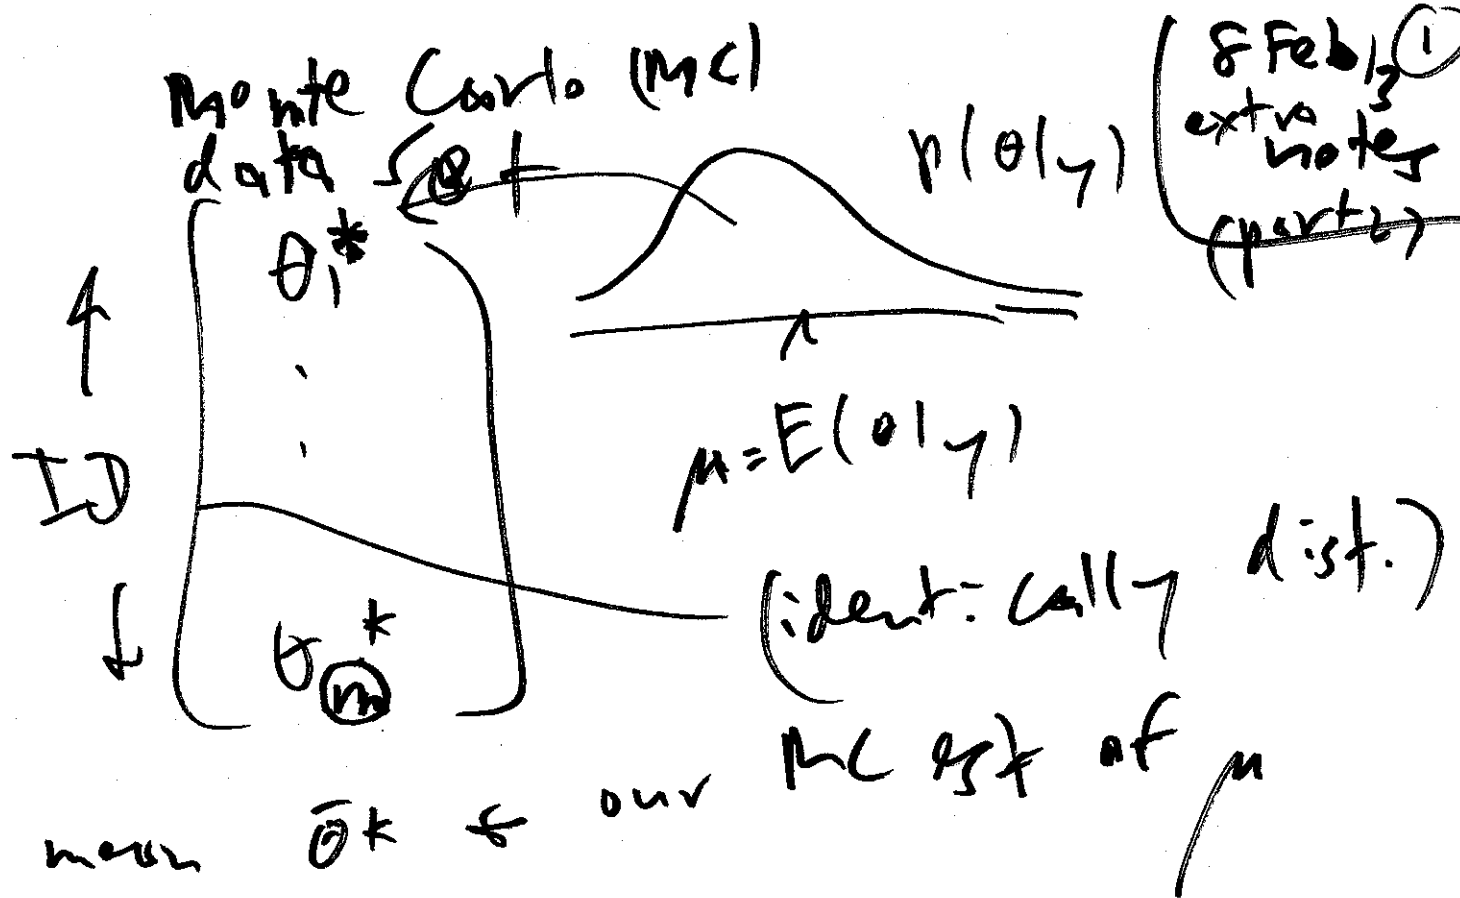 Monte Carlo (MC)
data set
8 Feb 13 ①
extra
notes
(part 2)
p(θ|y)
θ₁*
.
.
ID
θₘ*
μ = E(θ|y)
(identically dist.)
mean θ̄* ← our MC est of μ